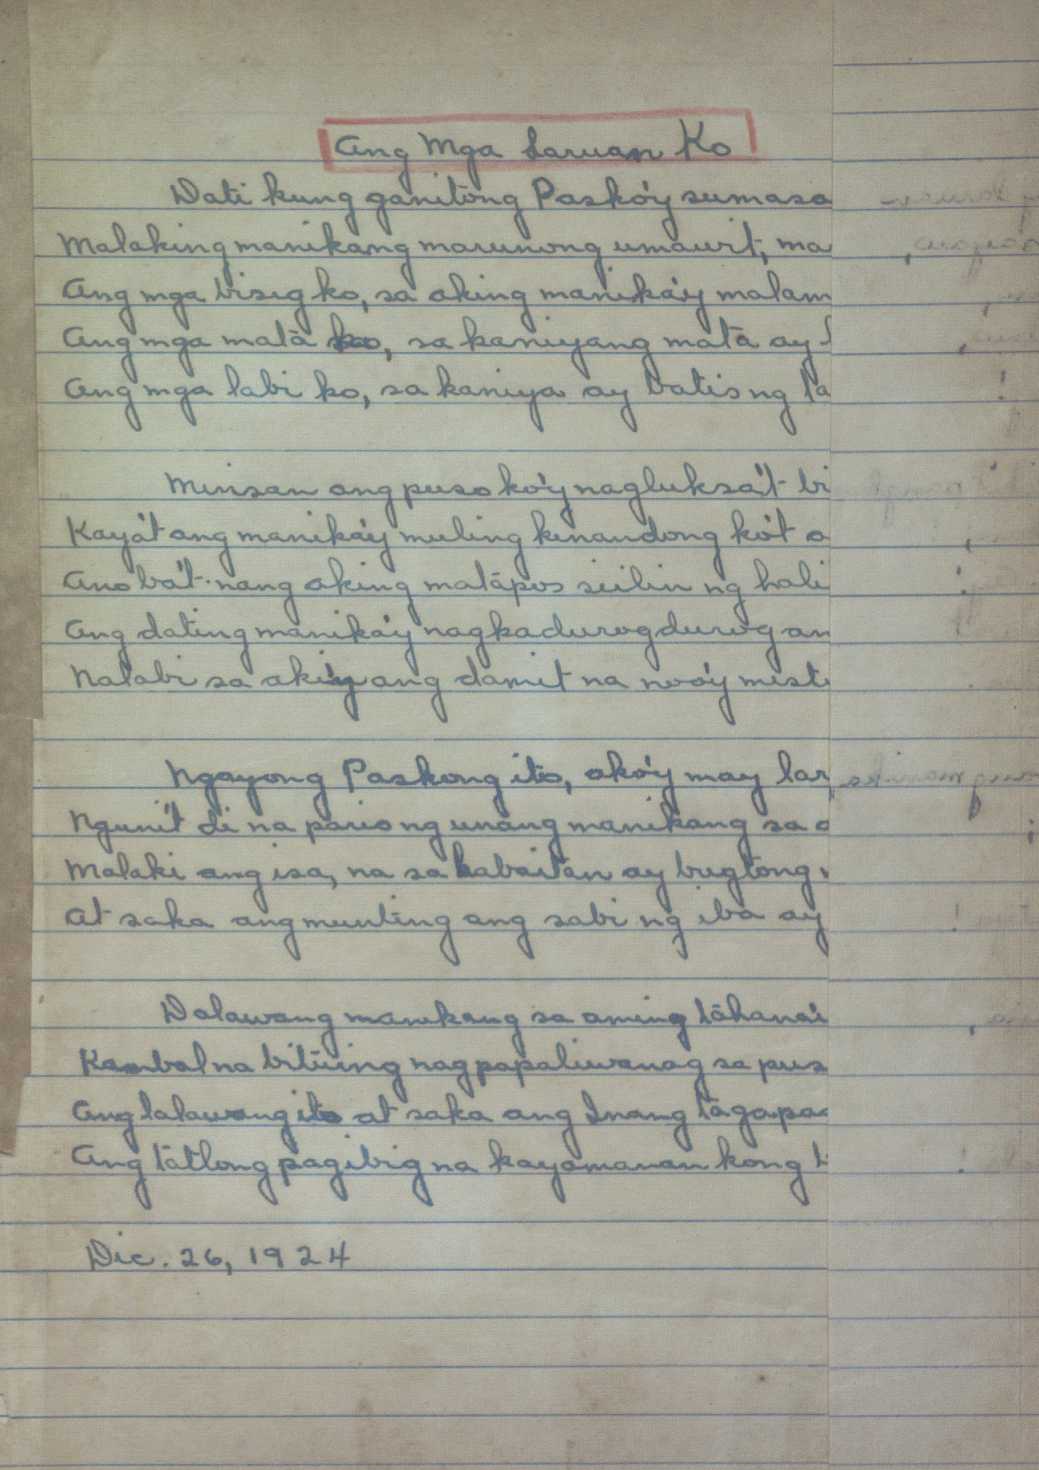 Ang Mga Laruan Ko
Dati kung ganitong Pasko'y sumasa
Malaking manikang marunong umawit, ma
Ang mga bisig ko, sa aking manika'y malam
Ang mga matá ko, sa kaniyang matá ay
Ang mga labi ko, sa kaniya ay batis ng
Minsan ang puso ko'y nagluksa't bi
Kaya't ang manika'y muling kinandong ko't a
Ano ba't nang aking matápos siilin ng hali
Ang dating manika'y nagkadurogdurog an
Nalabi sa aki'y ang damit na noo'y mist
Ngayong Paskong ito, ako'y may lar
Nguni't di na pario ng unang manikang sa
Malaki ang isa, na sa kabaitan ay bugtong
At saka ang munting ang sabi ng iba ay
Dalawang manikang sa aming táhana'
Kambal na bitúing nagpapaliwanag sa pus
Ang lalawang ito at saka ang Inang tagapa
Ang tátlong pagibig na kayamanan kong
Dic. 26, 1924